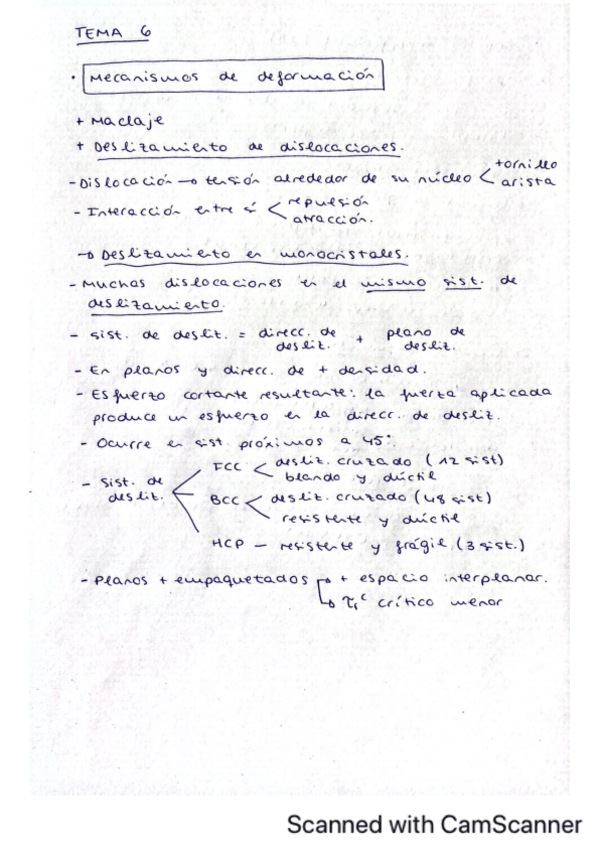 TEMA 6
· Mecanismos de deformación
+ Maclaje
+ Deslizamiento de dislocaciones.
- Dislocación → tensión alrededor de su núcleo < tornillo
arista
- Interacción entre sí < repulsión
atracción.
→ Deslizamiento en monocristales.
- Muchas dislocaciones en el mismo sist. de
deslizamiento.
- sist. de desliz. = direcc. de desliz. + plano de desliz.
- En planos y direcc. de + densidad.
- Esfuerzo cortante resultante: la fuerza aplicada
produce un esfuerzo en la direcc. de desliz.
- Ocurre en sist. próximos a 45°.
- Sist. de desliz.
FCC < desliz. cruzado (12 sist)
blando y dúctil
BCC < desliz. cruzado (48 sist)
resistente y dúctil
HCP — resistente y frágil (3 sist.)
- Planos + empaquetados → + espacio interplanar.
→ τ₁ᶜ crítico menor
Scanned with CamScanner